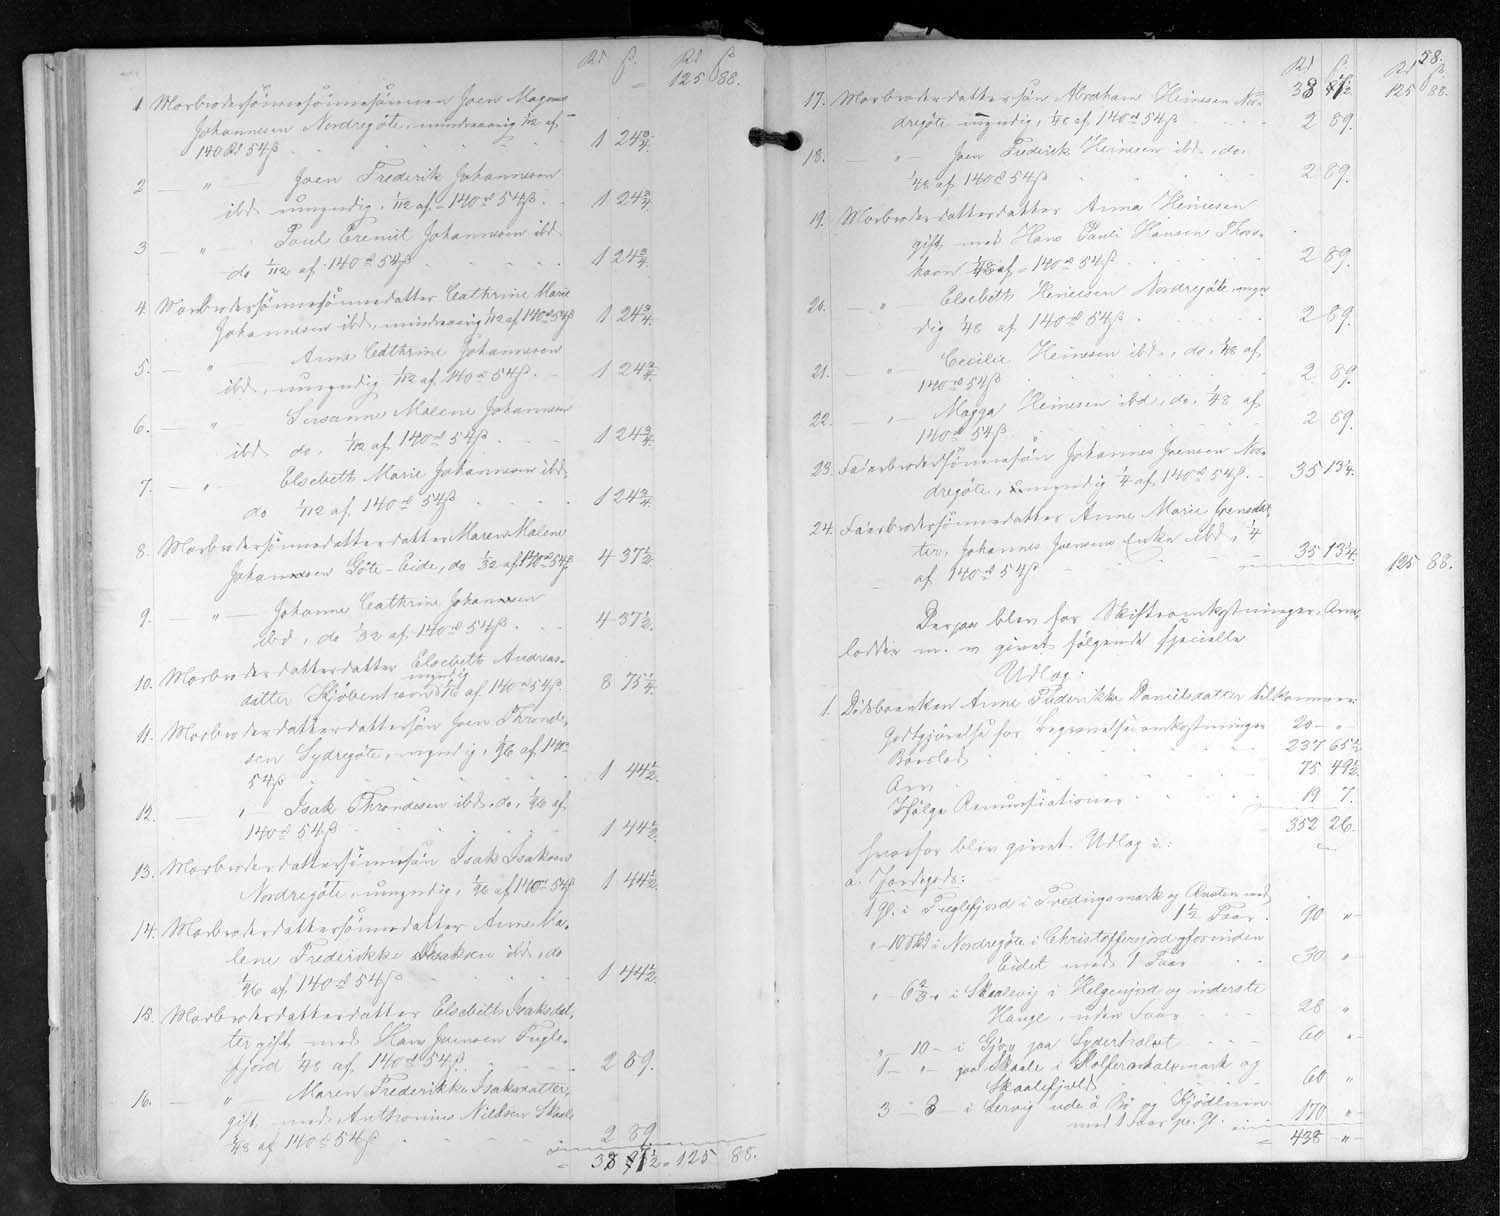 Rd ß. Rd ß
125 88.
1. Morbrodersönnesönnesönnen Joen Magnus
Johannesen Nordregöte, mindreaarig 1/112 af
140 Rd 54 ß 1 24 3/4.
2 — " — Joen Frederik Johannesen
ibd umyndig, 1/112 af 140 rd 54 ß. 1 24 3/4.
3 — " — Poul Johannesen ibd
do 1/112 af 140 rd 54 ß 1 24 3/4.
4. Morbrodersönnesönnedatter Cathrine Marie
Johannesen ibd, mindreaarig 1/112 af 140 rd 54 ß 1 24 3/4.
5. — " — Anne Cathrine Johannesen
ibd, umyndig 1/112 af 140 rd 54 ß. 1 24 3/4.
6. — " — Susanne Malene Johannesen
ibd do. 1/112 af 140 rd 54 ß. 1 24 3/4.
7. — " — Elsebeth Marie Johannesen ibd,
do 1/112 af 140 rd 54 ß 1 24 3/4.
8. Morbrodersönnedatterdatter Maren Malene
Johannesen Göte-Eide, do 1/32 af 140 rd 54 ß 4 37 1/2.
9. — " — Johanne Cathrine Johannesen
ibd, do 1/32 af 140 rd 54 ß. 4 37 1/2.
10. Morbroderdatterdatter Elsebeth Andreas-
myndig
datter Kjöbenhavn 1/16 af 140 rd 54 ß. 8 75 1/4.
11. Morbroderdatterdattersön Joen Thrond-
sen Sydregöte, umyndig, 1/96 af 140 rd
54 ß 1 44 1/2.
12. — " Isak Throndesen ibd. do. 1/96 af
140 rd 54 ß 1 44 1/2.
13. Morbroderdattersönnesön Isak Isaksen
Nordregöte, umyndig, 1/96 af 140 rd 54 ß 1 44 1/2.
14. Morbroderdattersönnedatter Anne Ma-
lene Frederikke Isaksen ibd, do
1/96 af 140 rd 54 ß 1 44 1/2.
15. Morbroderdatterdatter Elsebeth Isaksdat-
ter gift med Hans Joensen Fugle-
fjord 1/48 af 140 rd 54 ß. 2 89.
16. — " — Maren Frederikke Isaksdatter,
gift med Anthonius Nielsen Skaale
1/48 af 140 rd 54 ß 2 89
125 88.
58.
Rd ß Rd ß
125 88.
17. Morbroderdattersön Abraham Heinesen Nor-
dregöte myndig, 1/48 af 140 rd 54 ß 2 89.
18. — " — Joen Frederik Heinesen ibd, do.
1/48 af 140 rd 54 ß 2 89.
19. Morbroderdatterdatter Anna Heinesen
gift med Hans Pauli Hansen Thors-
havn 1/48 af 140 rd 54 ß 2 89.
20. — " Elsebeth Heinesen Nordregöte, myn-
dig 1/48 af 140 rd 54 ß 2 89.
21. — " — Cecilie Heinesen ibd, do. 1/48 af
140 rd 54 ß 2 89.
22. " — Magga Heinesen ibd, do. 1/48 af
140 rd 54 ß 2 89.
23. Faderbrodersönnesön Johannes Joensen Nor-
dregöte, umyndig 1/4 af 140 rd 54 ß. 35 13 1/4.
24. Faderbrodersönnedatter Anne Marie Joensdat-
ter, Johannes Joensens Enke ibd, 1/4
af 140 rd 54 ß 35 13 1/4. 125 88.
Derpaa blev for Skifteomkostninger, Arve-
lodder m. v givet følgende specielle
Udlag.
1. Dødsboenken Anne Frederikke Danielsdatter tilkommer:
Godtgjörelse for Begravelsesomkostninger 20 — " —
Boeslod 237 65 1/2
Arv 75 49 1/2.
Ifølge Renunsiationer 19 7.
352 26.
hvorfor blev givet Udlag i:
a. Jordegods:
1 Gl. i Fuglefjord i Fredingsmark og Rusten med
1 1/2 Faar. 90 " —
" - 10 Skd i Nordregöte i Christoffersjord forinden
Eidet med 1 Faar 30 " —
" - 6 2/3 " i Skaalevig i Helgenjord og inderste
Hauge, uden Faar 28 "
" - 10 - i Gjov paa Sydertralvt 60 " -
1 - " - paa Skaale i mark og
Skaalefjeld 60 "
3 - 3 - i Lervig ude å Bø og
med 1 Faar pr. Gl. 170 " -
438 - " -